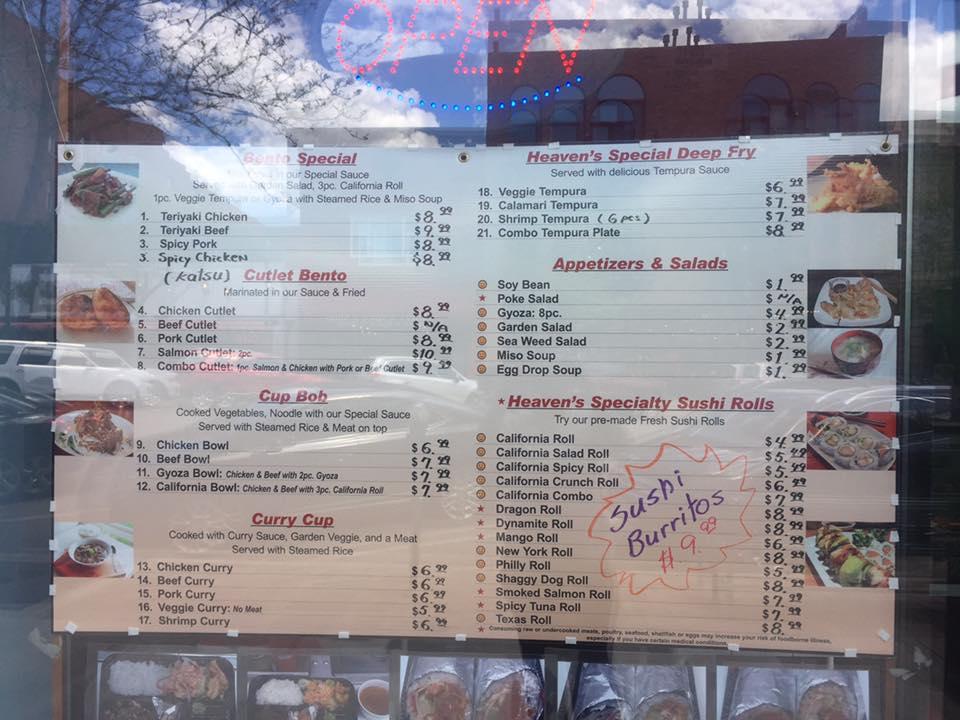 OPEN
Bento Special
in our Special Sauce
Served with Garden Salad, 3pc. California Roll
1pc. Veggie Tempura or Gyoza with Steamed Rice & Miso Soup
1. Teriyaki Chicken $8.99
2. Teriyaki Beef $9.99
3. Spicy Pork $8.99
3. Spicy Chicken $8.99
(Katsu) Cutlet Bento
Marinated in our Sauce & Fried
4. Chicken Cutlet $8.99
5. Beef Cutlet $N/A
6. Pork Cutlet $8.99
7. Salmon Cutlet: 2pc. $10.99
8. Combo Cutlet: 1pc. Salmon & Chicken with Pork or Beef Cutlet $9.99
Cup Bob
Cooked Vegetables, Noodle with our Special Sauce
Served with Steamed Rice & Meat on top
9. Chicken Bowl $6.99
10. Beef Bowl $7.99
11. Gyoza Bowl: Chicken & Beef with 2pc. Gyoza $7.99
12. California Bowl: Chicken & Beef with 3pc. California Roll $7.99
Curry Cup
Cooked with Curry Sauce, Garden Veggie, and a Meat
Served with Steamed Rice
13. Chicken Curry $6.99
14. Beef Curry $6.99
15. Pork Curry $6.99
16. Veggie Curry: No Meat $5.99
17. Shrimp Curry $6.99
Heaven's Special Deep Fry
Served with delicious Tempura Sauce
18. Veggie Tempura $6.99
19. Calamari Tempura $7.99
20. Shrimp Tempura (6pcs) $7.99
21. Combo Tempura Plate $8.99
Appetizers & Salads
Soy Bean $1.99
★ Poke Salad $N/A
Gyoza: 8pc. $4.99
Garden Salad $2.99
Sea Weed Salad $2.99
Miso Soup $1.99
Egg Drop Soup $1.99
★Heaven's Specialty Sushi Rolls
Try our pre-made Fresh Sushi Rolls
California Roll $4.99
California Salad Roll $5.49
California Spicy Roll $5.49
California Crunch Roll $6.99
California Combo $7.99
★ Dragon Roll $8.99
★ Dynamite Roll $8.99
★ Mango Roll $6.99
New York Roll $8.99
Philly Roll $5.99
Shaggy Dog Roll $8.99
★ Smoked Salmon Roll $7.99
★ Spicy Tuna Roll $7.99
Texas Roll $8.99
Sushi
Burritos
$9.99
★ Consuming raw or undercooked meats, poultry, seafood, shellfish or eggs may increase your risk of foodborne illness,
especially if you have certain medical conditions.